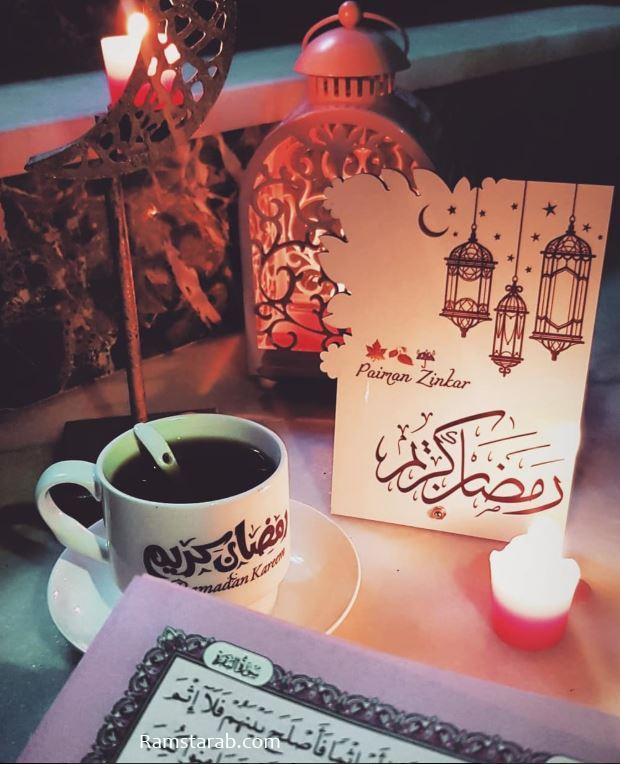 Paiman Zinkar
رمضان كريم
رمضان كريم
Ramadan Kareem
سورة البقرة
فأصلح بينهم فلا إثم
Ramstarab.com